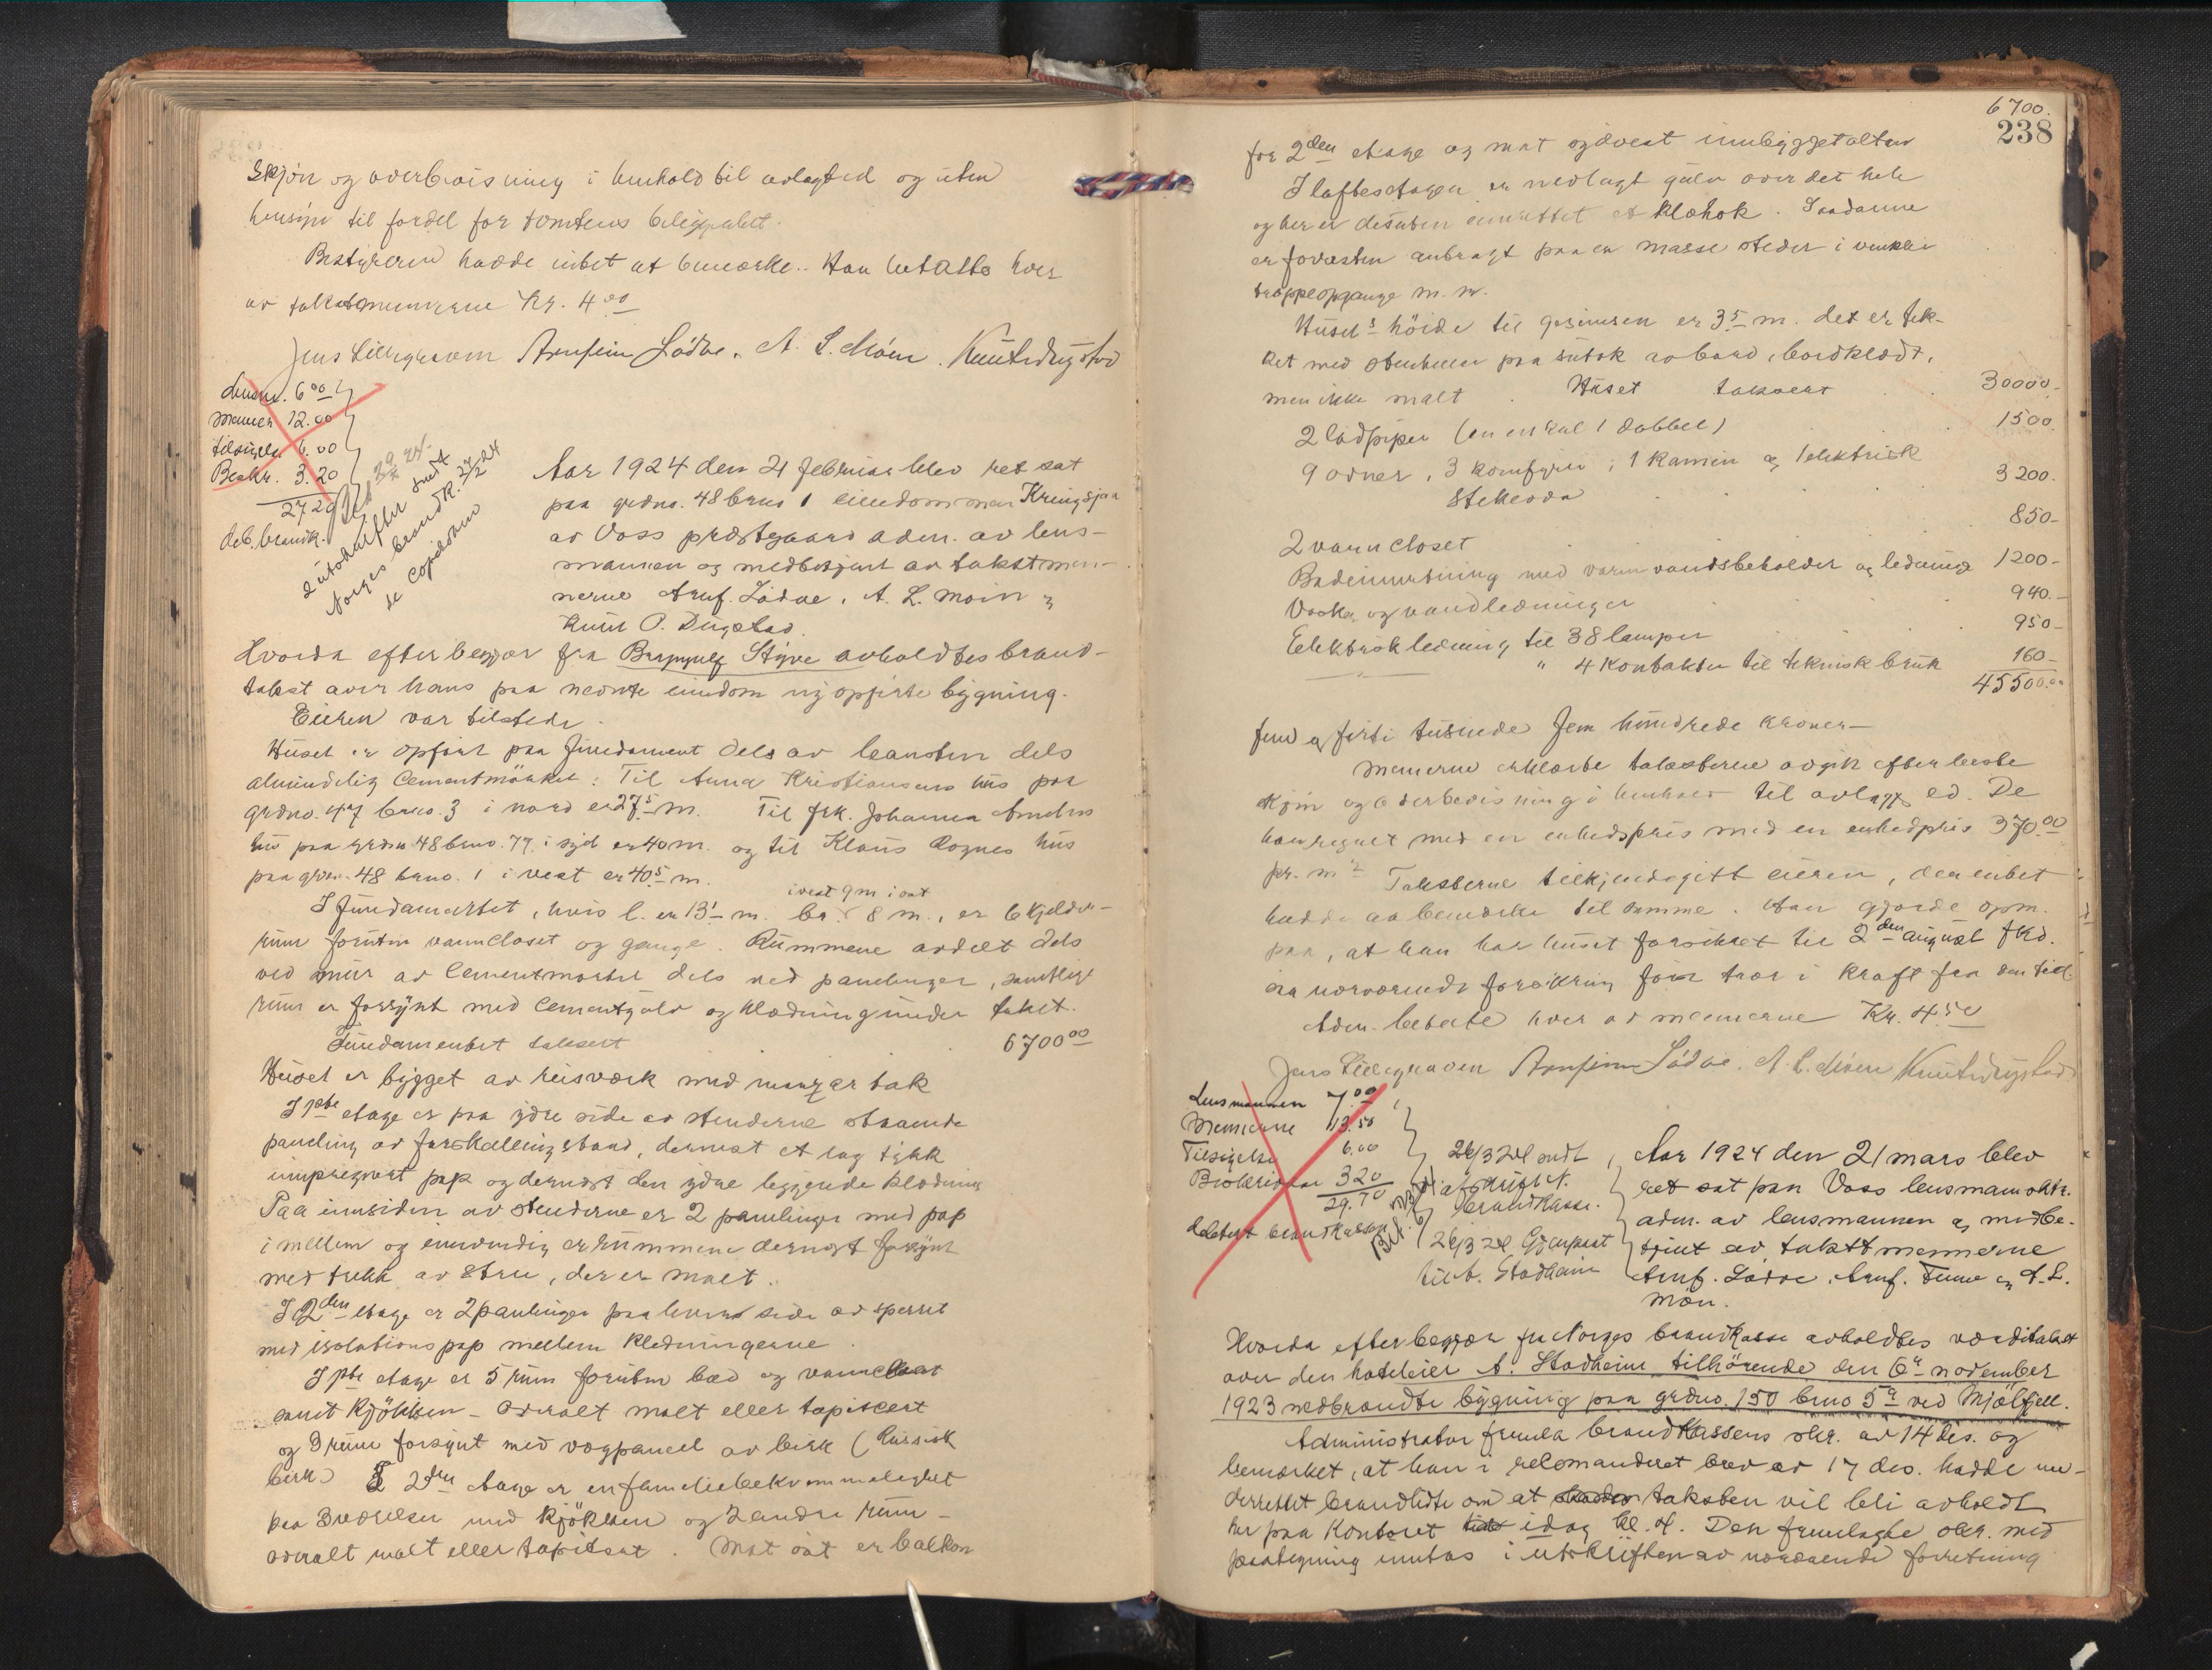 Skjøn og overbevisning i henhold til avlagt ed og uten
hensyn til fordel for tomtens beliggenhet.
Bestyreren hadde intet at bemerke. Han betalte hver
av takstmennerne kr. 4.00
Jens Lillegraven Arnfinn Lödve. A. L. Móen. Knut Dugstad
Lensm. 6.00
Mænnen 12.00
tilsigelse 6.00
Beskr. 3.20
27.20
deb. brandk.
2 utskrifter sendt
Norges brandk. 27/2 24
de Copidown
Aar 1924 den 21 februar blev ret sat
paa grdno. 48 brno 1 eiendommen Kringsjaa
av Voss prestgaard adm. av lens-
mannen og medbetjent av takstmen-
nerne Arnf. Lödve, A. L. Moin og
Knut O. Dugstad.
Hvorda efter begjær fra Brynjulf Styve avholdtes brand-
takst over hans paa nevnte eiendom ny opførte bygning.
Eieren var tilstede.
Huset er opført paa fundament dels av graasten dels
almindelig Cementmörkel: Til Anna Kristiansens hus paa
grdno. 47 brno. 3 i nord er 27.5 m. Til frk. Johanna
hus paa grdno 48 brno. 77 i syd er 40 m. og til Klaus Rognes hus
paa grdn. 48 brno. 1 i vest er 40.5 m.
i vest 9 m i øst
I fundamentet, hvis l. er 13.1 m. br. 8 m., er 6 kjelder-
rum foruten vanncloset og gange. Rummene avdelt dels
ved mur av Cementmørtel dels ved panelinger, samtlige
rum er forsynt med Cementgolv og klædning under taket.
Fundamentet taksert 6700.00
Huset er bygget av reisverk med mansar tak
I 1ste etage er paa ydre side av stenderne staaende
paneling av forskallingsbord, dernest et lag tykk
impregnert pap og dernest den ydre liggende klædning
Paa innsiden av stenderne er 2 panelinger med pap
i mellem og innvendig er rummene dernest forsynt
med trekk av strie, der er malt.
I 2den etage er 2 panelinger paa hver side av sperret
med isolationspap mellem klædningerne.
I 1ste etage er 5 rum foruten bad og vanncloset
samt kjökken - overalt malt eller tapisert
og 3 rum forsynt med vegpanel av birk (Russisk
birk) I 2den etage er en familiebekvemmelighet
paa 3 værelser med kjökken og 2 andre rum -
overalt malt eller tapitsert. Mot øst er balkon
6700.
238
for 2den etage og mot sydvest innbygget altan
I loftsetagen er nedlagt gulv over det hele
og her er desuten innrettet et klehok. Saadanne
er forresten anbragt paa en masse steder i
trappeopgange m. m.
Husets höide til gesimsen er 3.5 m. det er tek-
ket med stenheller paa sutak av bord, bordklædt,
men ikke malt. Huset taksert 30000.-
2 ladpiper (en enkel 1 dobbel) 1500.
9 ovner, 3 komfyrer, 1 kamin og 1 elektrisk
Stekeovn 3200.
2 vann closet 850-
Badeinnretning med varmvandsbeholder og ledninger 1200-
Vaske og vandledninger 940.-
Elektrisk ledning til 38 lamper 950-
" 4 kontakter til teknisk bruk 160-
45500.00
fem og firti tusinde fem hundrede kroner-
Mennerne erklærte taksterne avgit efter beste
skjön og overbevisning i henhold til avlagt ed. De
har regnet med en enhedspris med en enhedpris 370.00
pr. m2 Taksterne tilkjendegitt eieren, der intet
hadde at bemerke til samme. Han gjorde opm.
paa, at han har huset forsikret til 2den august frd.
saa nærværende forsikring först træ i kraft fra den tid.
Adm. betalte hver av mennerne Kr. 4.50
Jens Lillegraven Arnfinn Lödve. A. L. Móen Knut Dugstad
Lensmannen 7.00
Mennerne 13.50
Tilsigelse 6.00
Beskrivelse 3.20
29.70
debitert brandkassen
26/3 24 sendt
afskrift N.
brandkasse.
26/3 24 Gjenpart
til A. Stadheim
Aar 1924 den 21 mars blev
ret sat paa Voss lensmannsktr.
adm. av lensmannen og medbe-
tjent av takstmennerne
Arnf. Lödve, Arnf. Finne og A. L.
Möen.
Hvorda efter begjær fra Norges brandkasse avholdtes verditakst
over den hoteleier A. Stadheim tilhörende den 6te november
1923 nedbrændte bygning paa grdno. 150 brno 5 ved Mjölfjell.
Administrator fremla brandkassens skr. av 14 des. og
bemerket, at han i rekomanderet brev av 17 des. hadde un-
derrettet brandlidte om at taksten vil bli avholdt
her paa Kontoret idag kl. 4. Den fremlagte skr. med
paategning inntas i utskriften av nærværende forretning